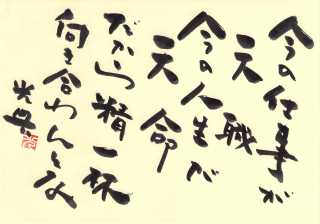 今の仕事が
天職
今の人生が
天命
だから精一杯
向き合わんとな